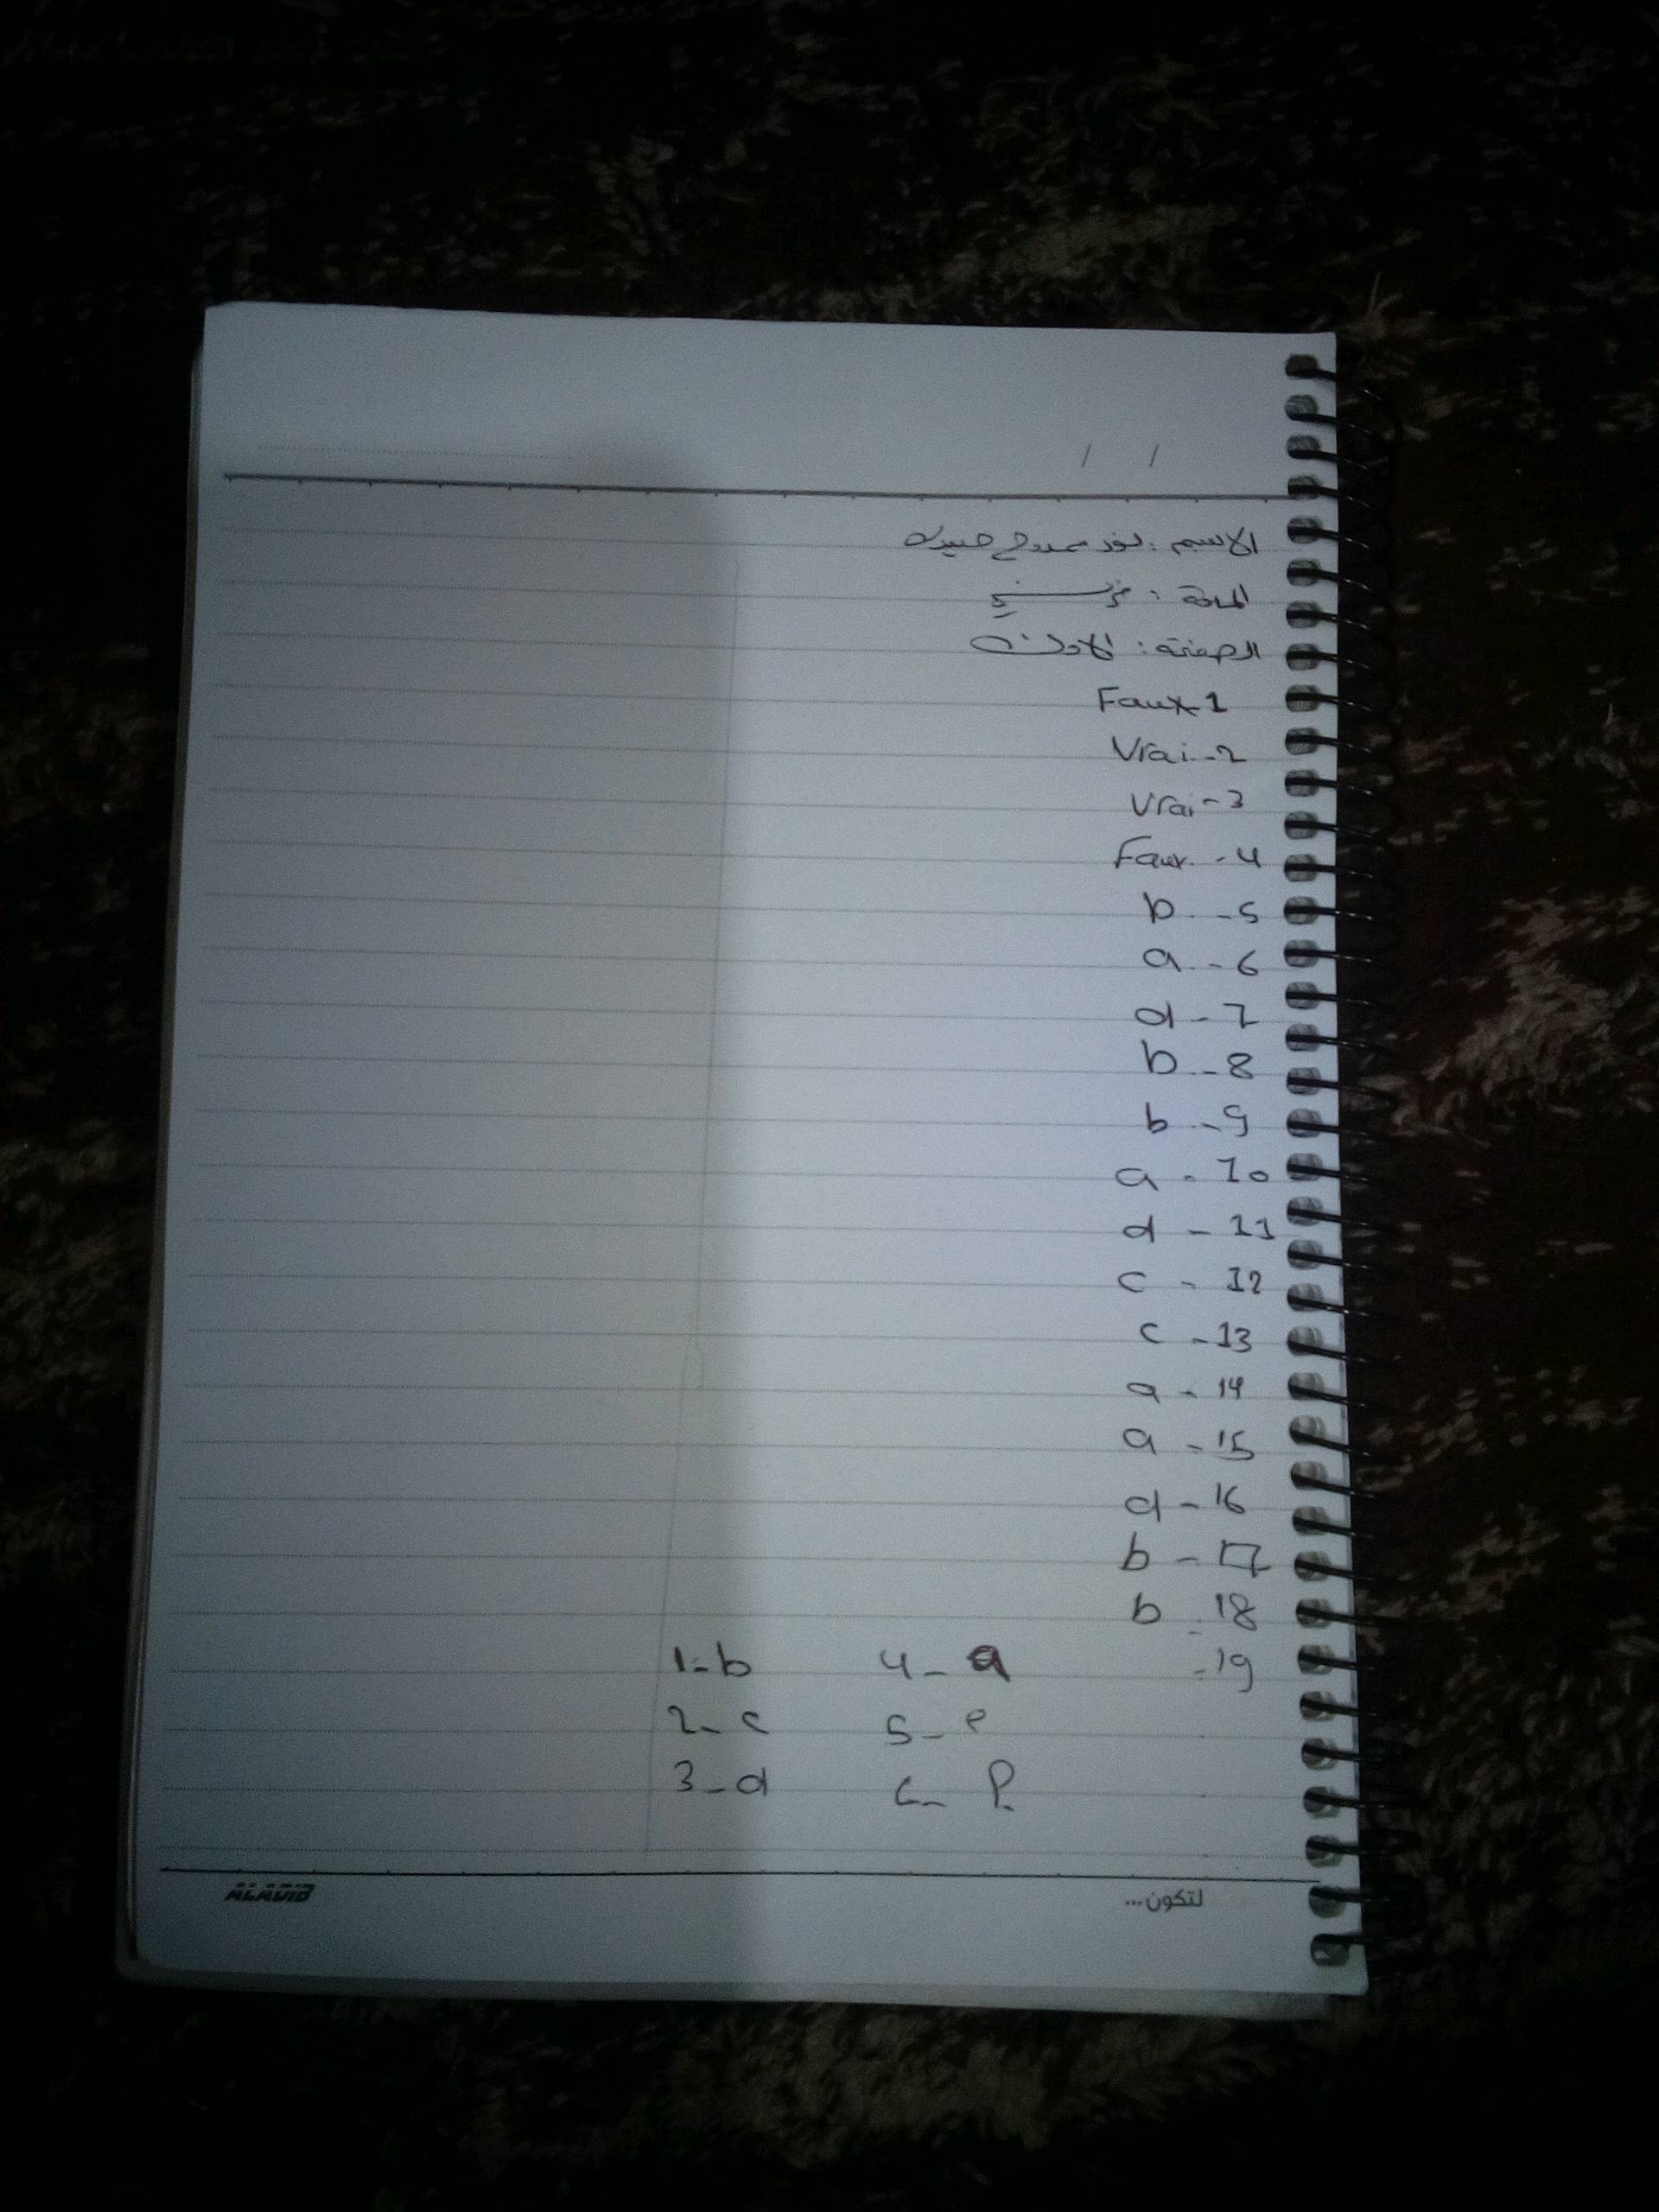 / /
الاسم : نور ممدوح حميدي
المادة :
الصفحة : الأولى
Faux-1
Vrai-2
Vrai-3
Faux-4
b-5
a-6
d-7
b-8
b-9
a-10
d-11
c-12
c-13
a-14
a-15
d-16
b-17
b-18
1-b 4-a -19
2-c 5-e
3-d 6-
ALADIB لتكون...